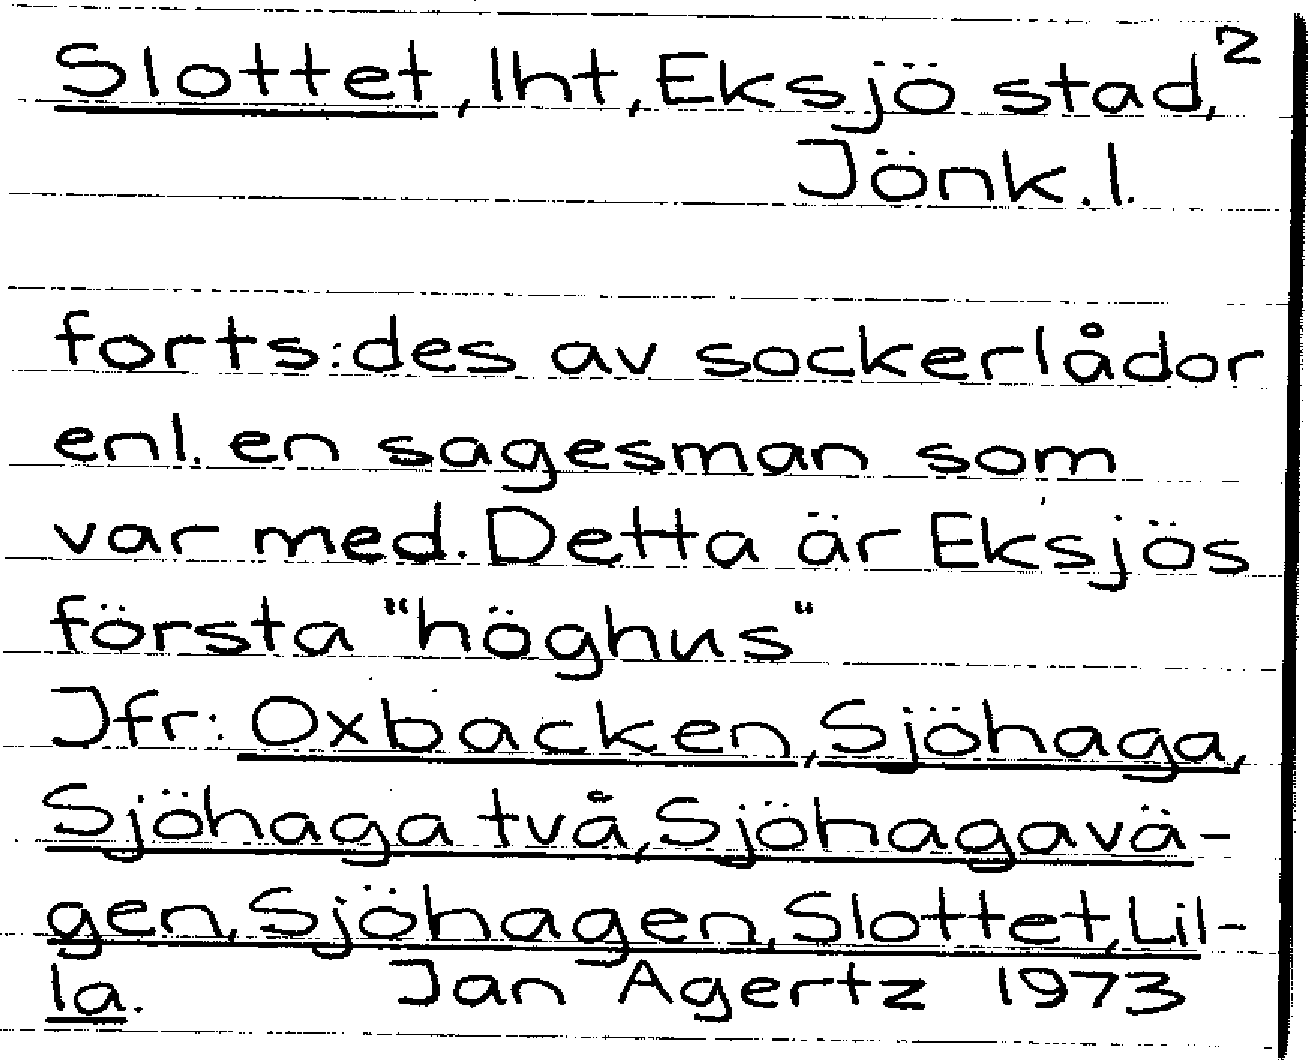 Slottet, lht, Eksjö stad, 2
Jönk.l.
forts:des av sockerlådor
enl. en sagesman som
var med. Detta är Eksjös
första "höghus"
Jfr: Oxbacken, Sjöhaga,
Sjöhaga två, Sjöhagavä-
gen, Sjöhagen, Slottet, Lil-
la. Jan Agertz 1973